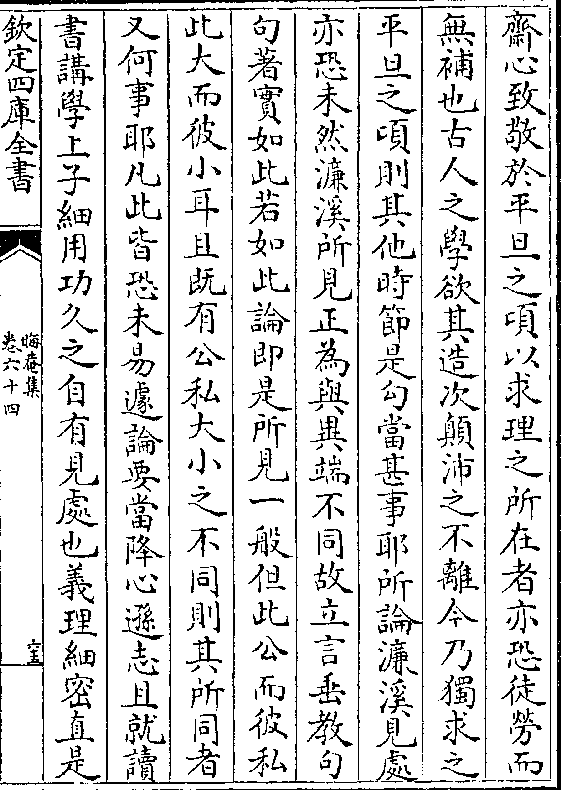 齋心致敬於平旦之頃以求理之所在者亦恐徒勞而
無補也古人之學欲其造次顛沛之不離今乃獨求之
平旦之頃則其他時節是勾當甚事耶所論濂溪見處
亦恐未然濂溪所見正為與異端不同故立言垂教句
句著實如此若如此論即是所見一般但此公而彼私
此大而彼小耳且既有公私大小之不同則其所同者
又何事耶凡此皆恐未易遽論要當降心遜志且就讀
書講學上子細用功久之自有見處也義理細密直是
欽定四庫全書
晦菴集
卷六十四